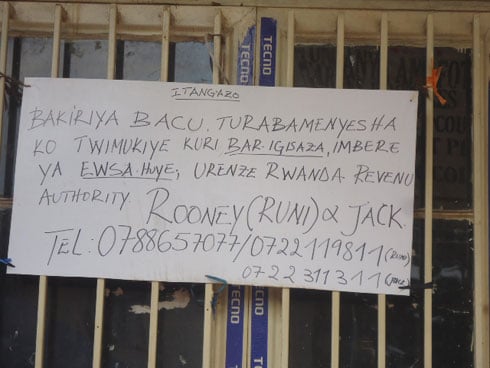 ITANGAZO
BAKIRIYA BACU, TURABAMENYESHA
KO TWIMUKIYE KURI BAR-IGISAZA, IMBERE
YA EWSA-Huye, URENZE RWANDA REVENU
AUTHORITY. ROONEY(RUNI) & JACK
TEL: 0788657077/0722119811 (RUNI)
0722311311 (JACK)
TECNO
TECNO
TECNO
TECNO